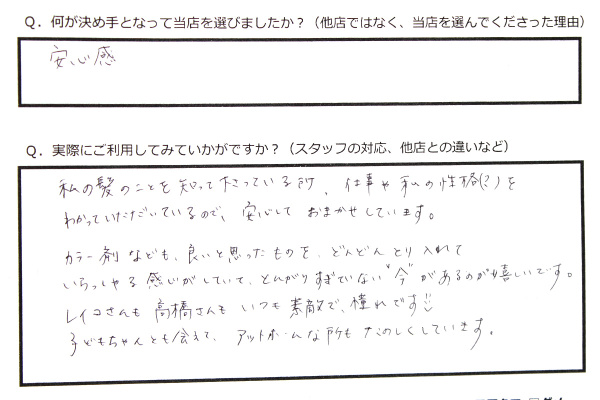 Q．何が決め手となって当店を選びましたか？（他店ではなく、当店を選んでくださった理由）
安心感
Q．実際にご利用してみていかがですか？（スタッフの対応、他店との違いなど）
私の髪のことを知って下さっている所、仕事や私の性格(?)を
わかっていただいているので、安心しておまかせしています。
カラー剤なども、良いと思ったものを、どんどんとり入れて
いらっしゃる感じがしていて、とんがりすぎていない"今"があるのが嬉しいです。
レイコさんも高橋さんもいつも素敵で、憧れです!!
子どもちゃんとも会えて、アットホームな所もたのしくしています。